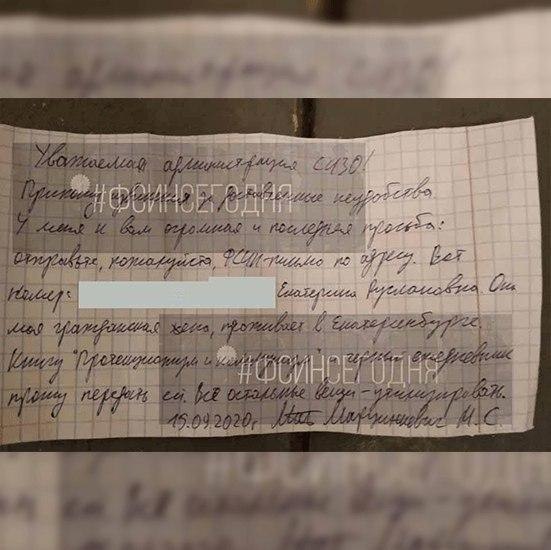 Уважаемая администрация СИЗО!
Приношу извинения за доставленные неудобства.
#ФСИНСЕГОДНЯ
У меня к вам огромная и последняя просьба:
отправьте, пожалуйста, ФСИН-письмо по адресу. Вот
номер: Екатерина Руслановна. Она
моя гражданская жена, проживает в Екатеринбурге.
Книгу "Протекционизм и коммунизм" и черный ежедневник
#ФСИНСЕГОДНЯ
прошу передать ей. Всё остальные вещи - утилизировать.
15.09.2020г Марцинкевич М.С.